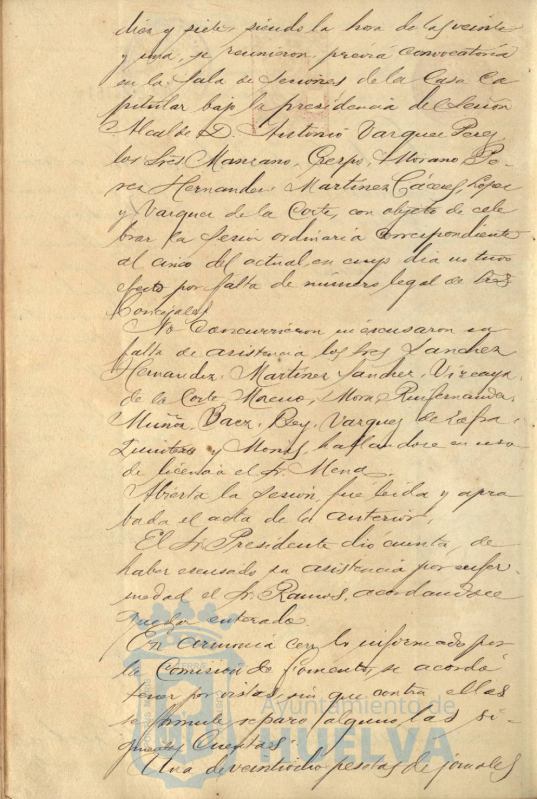 diez y siete, siendo la hora de las veinte
y una, se reunieron, previa convocatoria
en la Sala de Sesiones de la Casa Ca
pitular bajo la presidencia de Señor
Alcalde D. Antonio Vazquez Perez,
los Sres Manzano, Crespo, Morano, Pe-
rez Hernandez, Martínez Cáceres, Lopez
y Vazquez de la Corte, con objeto de cele
brar la sesion ordinaria correspondiente
al cinco del actual, en cuyo dia no tuvo
efecto por falta de número legal de Sres
Concejales.
No concurrieron ni escusaron su
falta de asistencia los Sres Sanchez
Hernandez, Martínez Sanchez, Vizcaya,
de la Corte, Moreno, Mora,
Muñiz, Baez, Rey, Vazquez de Zafra,
Quintero y hallandose en uso
de licencia el Sr. Mena.
Abierta la Sesion, fue leida y apro
bada el acta de la anterior.
El Sr. Presidente dio cuenta, de
haber escusado su asistencia por enfer
medad el Sr. Ramos, acordandose
quedar enterado.
En armonia con lo informado por
la Comision de fomento, se acordó
tener por vistas, sin que contra ellas
se formule reparo alguno, las si-
guientes Cuentas
Una de veintiocho pesetas de jornales
Ayuntamiento de
HUELVA